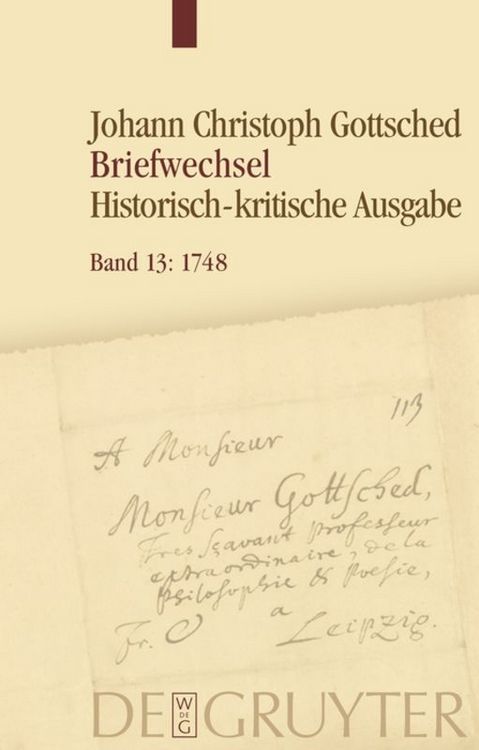 Johann Christoph Gottsched
Briefwechsel
Historisch-kritische Ausgabe
Band 13: 1748
113
A Monsieur
Monsieur Gottsched,
Tres sçavant Professeur
extraordinaire, de la
Philosophie & Poesie,
Fr.
a
Leipzig.
DE GRUYTER
W
DE
G